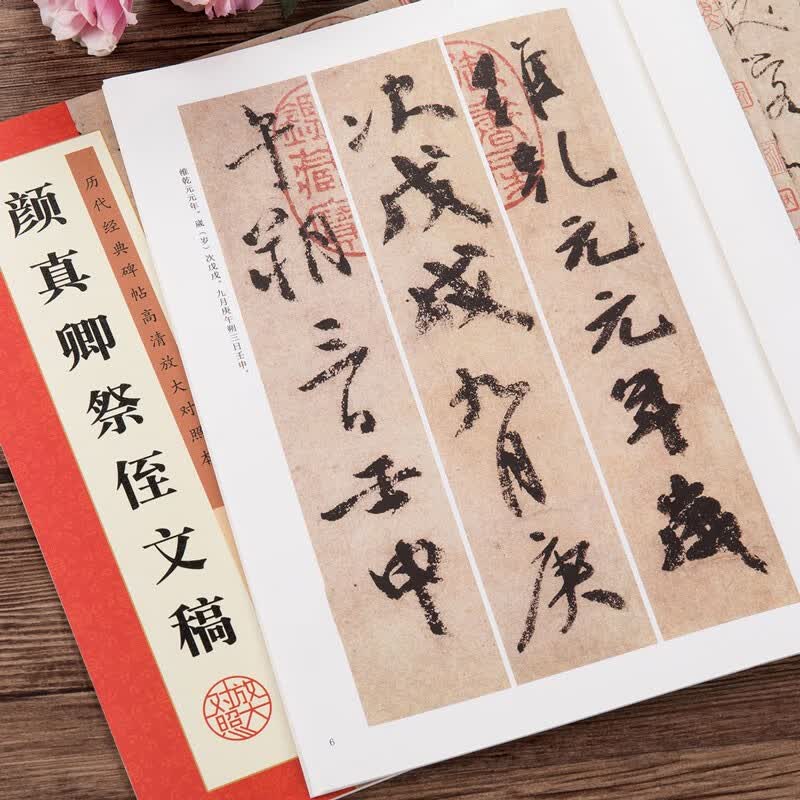 历代经典碑帖高清放大对照本
颜真卿祭侄文稿
放大对照
維乾元元年。歲（岁）次戊戌。九月庚午朔三日壬申。
維乾元元年歲
次戊戌九月庚
午朔三日壬申
6